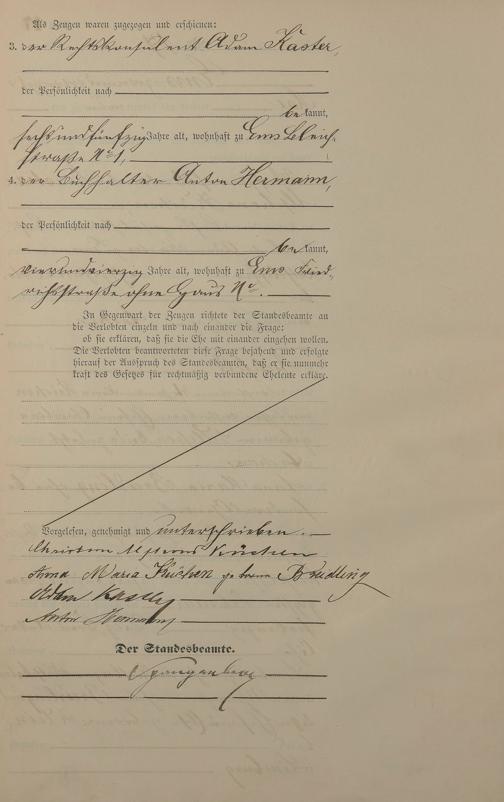 Als Zeugen waren zugezogen und erschienen:
3. der Rechtskonsulent Adam Kaster,
der Persönlichkeit nach
bekannt,
sechsundfünfzig Jahre alt, wohnhaft zu Ems Bleich-
straße No 1,
4. der Buchhalter Anton Hermann,
der Persönlichkeit nach
bekannt,
vierundvierzig Jahre alt, wohnhaft zu Ems Fried-
richsstraße ohne Haus No.
In Gegenwart der Zeugen richtete der Standesbeamte an
die Verlobten einzeln und nach einander die Frage:
ob sie erklären, daß sie die Ehe mit einander eingehen wollen.
Die Verlobten beantworteten diese Frage bejahend und erfolgte
hierauf der Ausspruch des Standesbeamten, daß er sie nunmehr
kraft des Gesetzes für rechtmäßig verbundene Eheleute erkläre.
Vorgelesen, genehmigt und unterschrieben.
Christian Alphons Küchen
Anna Maria Küchen geborene
Adam Kaster
Anton Hermann
Der Standesbeamte.
Spangenberg